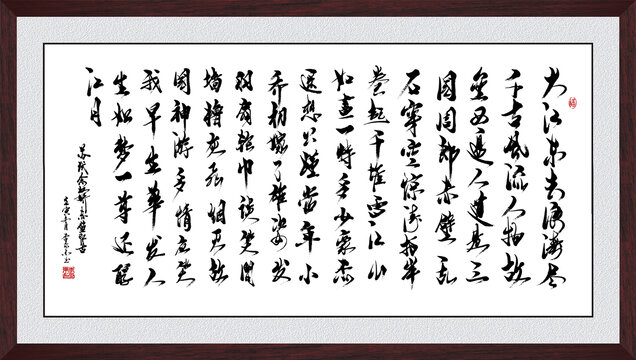 大江东去浪淘尽
千古风流人物故
垒西边人道是三
国周郎赤壁乱
石穿空惊涛拍岸
卷起千堆雪江山
如画一时多少豪杰
遥想公瑾当年小
乔初嫁了雄姿英发
羽扇纶巾谈笑间
樯橹灰飞烟灭故
国神游多情应笑
我早生华发人
生如梦一尊还酹
江月
苏轼念奴娇赤壁怀古